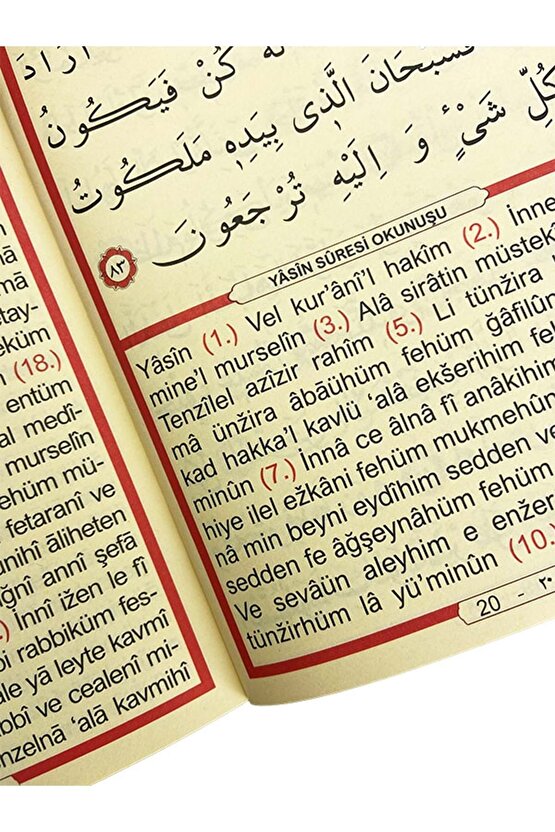 اَرَادَ
لَهُ كُنْ فَيَكُونُ
فَسُبْحَانَ الَّذٖى بِيَدِهٖ مَلَكُوتُ
كُلِّ شَىْءٍ وَ اِلَيْهِ تُرْجَعُونَ
٨٣
YÂSÎN SÛRESİ OKUNUŞU
Yâsîn (1.) Vel kur’âni’l hakîm (2.) İnne
mine’l murselîn (3.) Alâ sirâtin müstekî
Tenzîlel azîzir rahîm (5.) Li tünžira
mâ ünžira âbâühüm fehüm ğâfilûn
kad hakka’l kavlü ‘alâ ekšerihim fe
minûn (7.) İnnâ ce âlnâ fî anâkihim
hiye ilel ežkâni fehüm mukmehûn
nâ min beyni eydîhim sedden ve
sedden fe âğşeynâhüm fehüm
Ve sevâün aleyhim e enžer
tünžirhüm lâ yü’minûn (10.
20 - ٢٠
lâ
mâ
tay-
eküm
(18.)
entüm
al medî-
murselîn
ehüm mü-
fetaranî ve
unihî âliheten
ğnî annî şefâ
.) İnnî ižen le fî
bi rabbiküm fes-
ale yâ leyte kavmî
bbî ve cealenî mi-
nzelnâ ‘alâ kavmihî